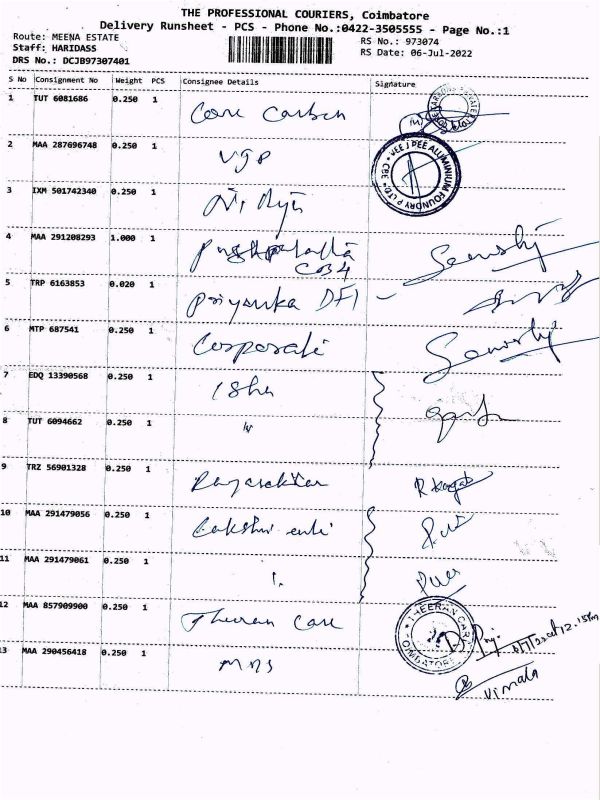 THE PROFESSIONAL COURIERS, Coimbatore
Delivery Runsheet - PCS - Phone No.:0422-3505555 - Page No.:1
Route: MEENA ESTATE
Staff: HARIDASS
DRS No.: DCJB97307401
RS No.: 973074
RS Date: 06-Jul-2022
S No Consignment No Weight PCS Consignee Details Signature
1 TUT 6081686 0.250 1 Core Carbon
2 MAA 287696748 0.250 1 VJP
VEE J PEE ALUMINIUM FOUNDRY P LTD CBE
3 IXM 501742340 0.250 1
4 MAA 291208293 1.000 1
5 TRP 6163853 0.020 1 Priyanka DFI -
6 MTP 687541 0.250 1 Corporate
7 EDQ 13390568 0.250 1 Isha
8 TUT 6094662 0.250 1 "
9 TRZ 56901328 0.250 1
10 MAA 291479056 0.250 1 Lakshmi
11 MAA 291479061 0.250 1
12 MAA 857909900 0.250 1 Theeran Care
THEERAN CARE COIMBATORE
13 MAA 290456418 0.250 1 MMS
Vimala